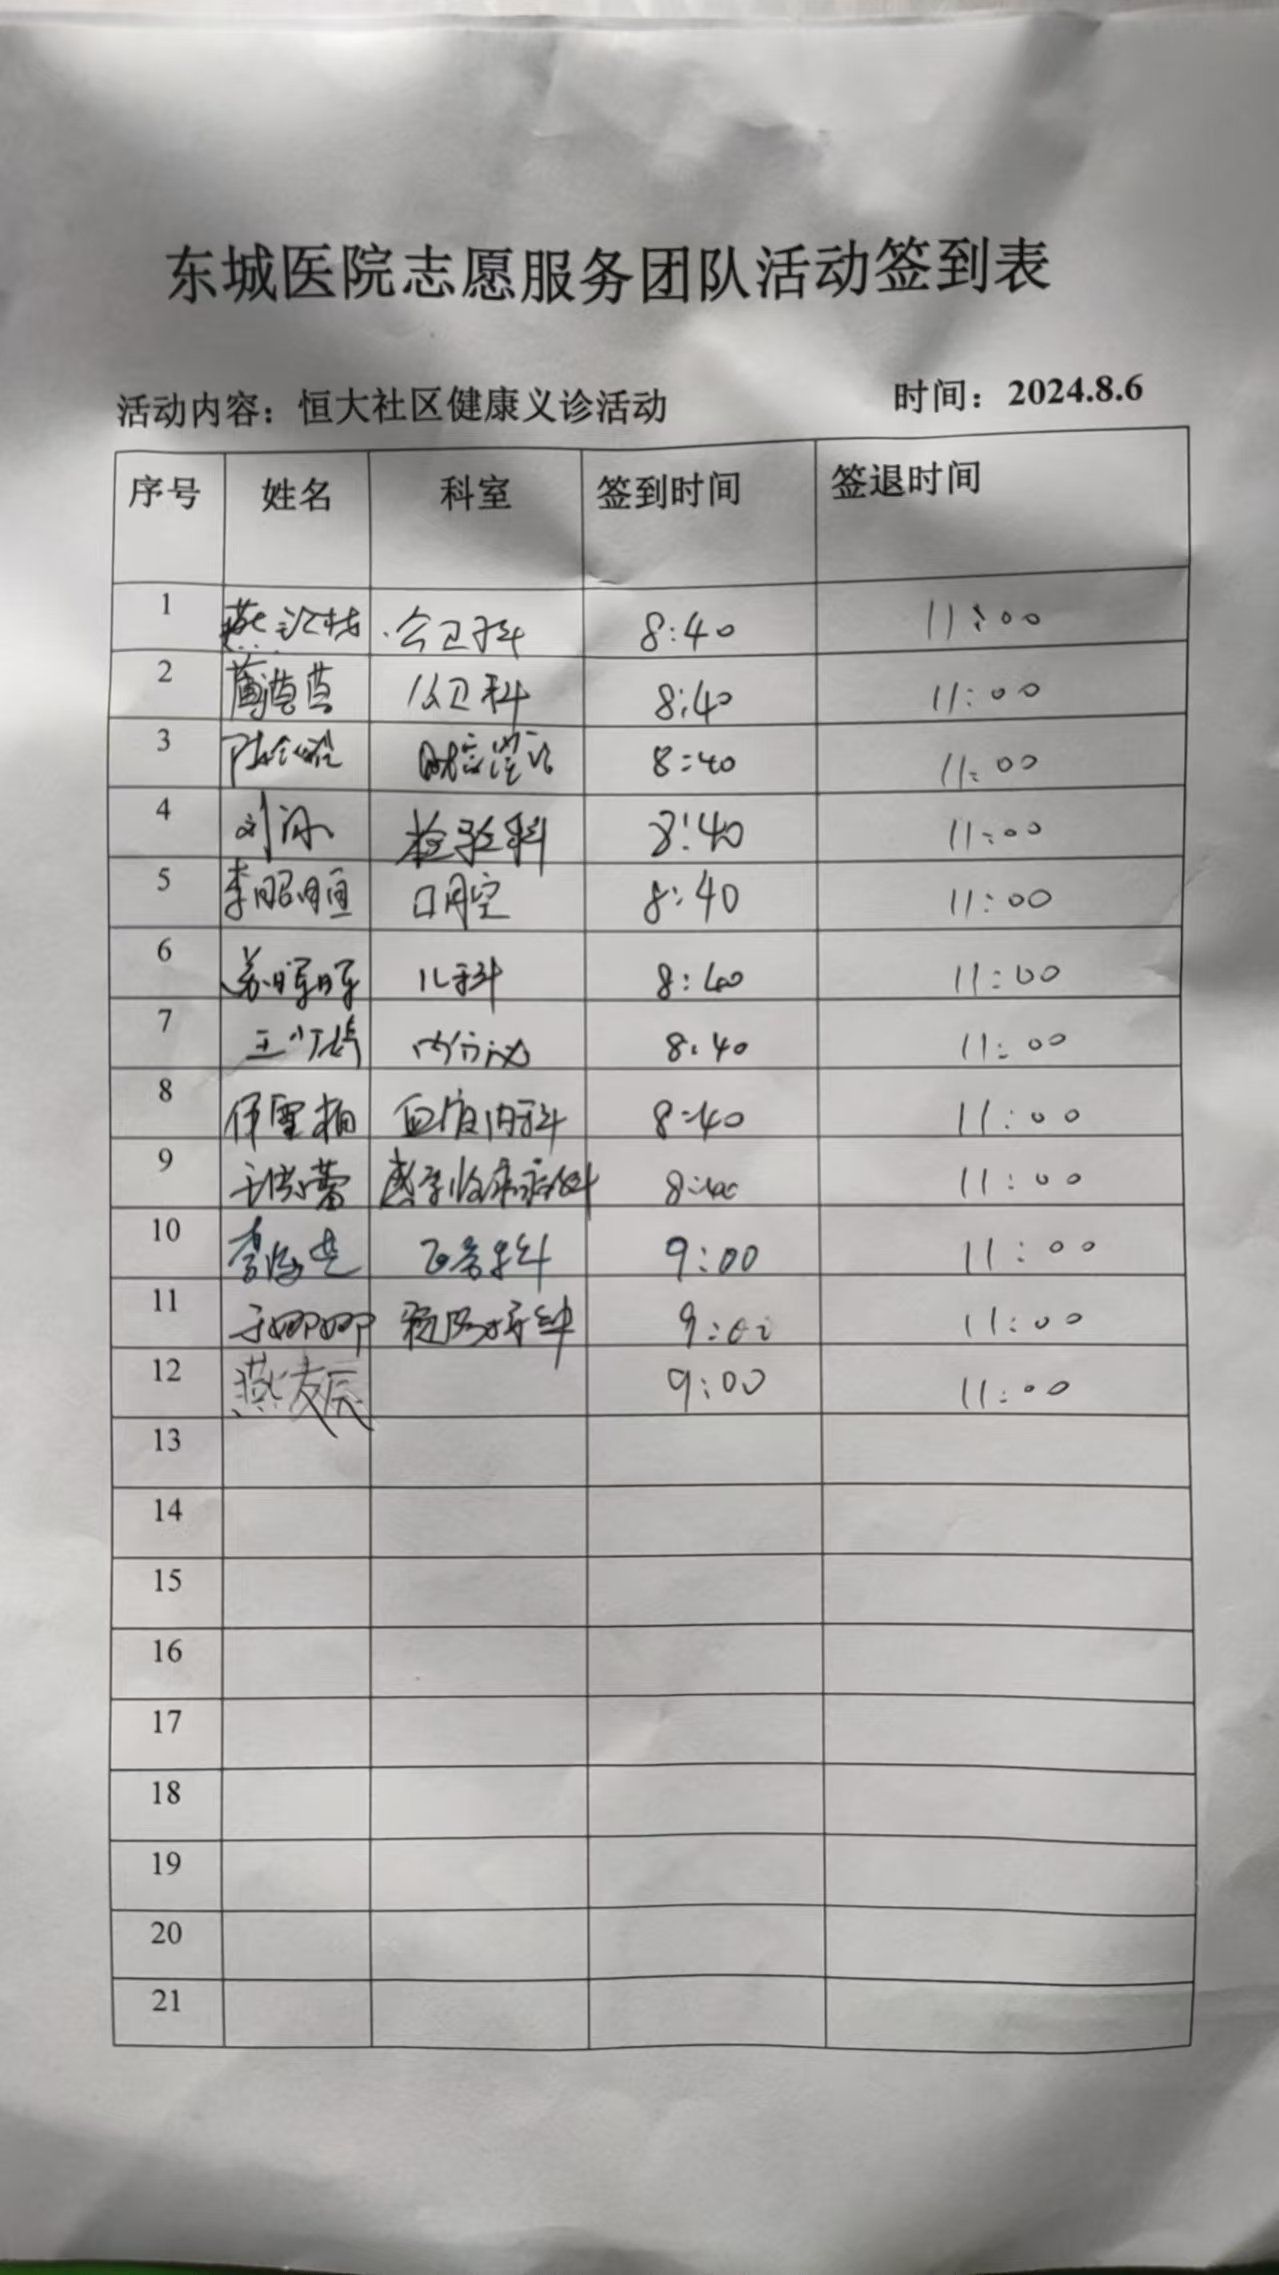 东城医院志愿服务团队活动签到表
活动内容：恒大社区健康义诊活动 时间：2024.8.6
序号 姓名 科室 签到时间 签退时间
1 公卫科 8:40 11:00
2 公卫科 8:40 11:00
3 8:40 11:00
4 刘 检验科 8:40 11:00
5 李 口腔 8:40 11:00
6 苏晖晖 儿科 8:40 11:00
7 王 内分泌 8:40 11:00
8 内科 8:40 11:00
9 8:40 11:00
10 李 9:00 11:00
11 于娜娜 9:00 11:00
12 燕友辰 9:00 11:00
13
14
15
16
17
18
19
20
21